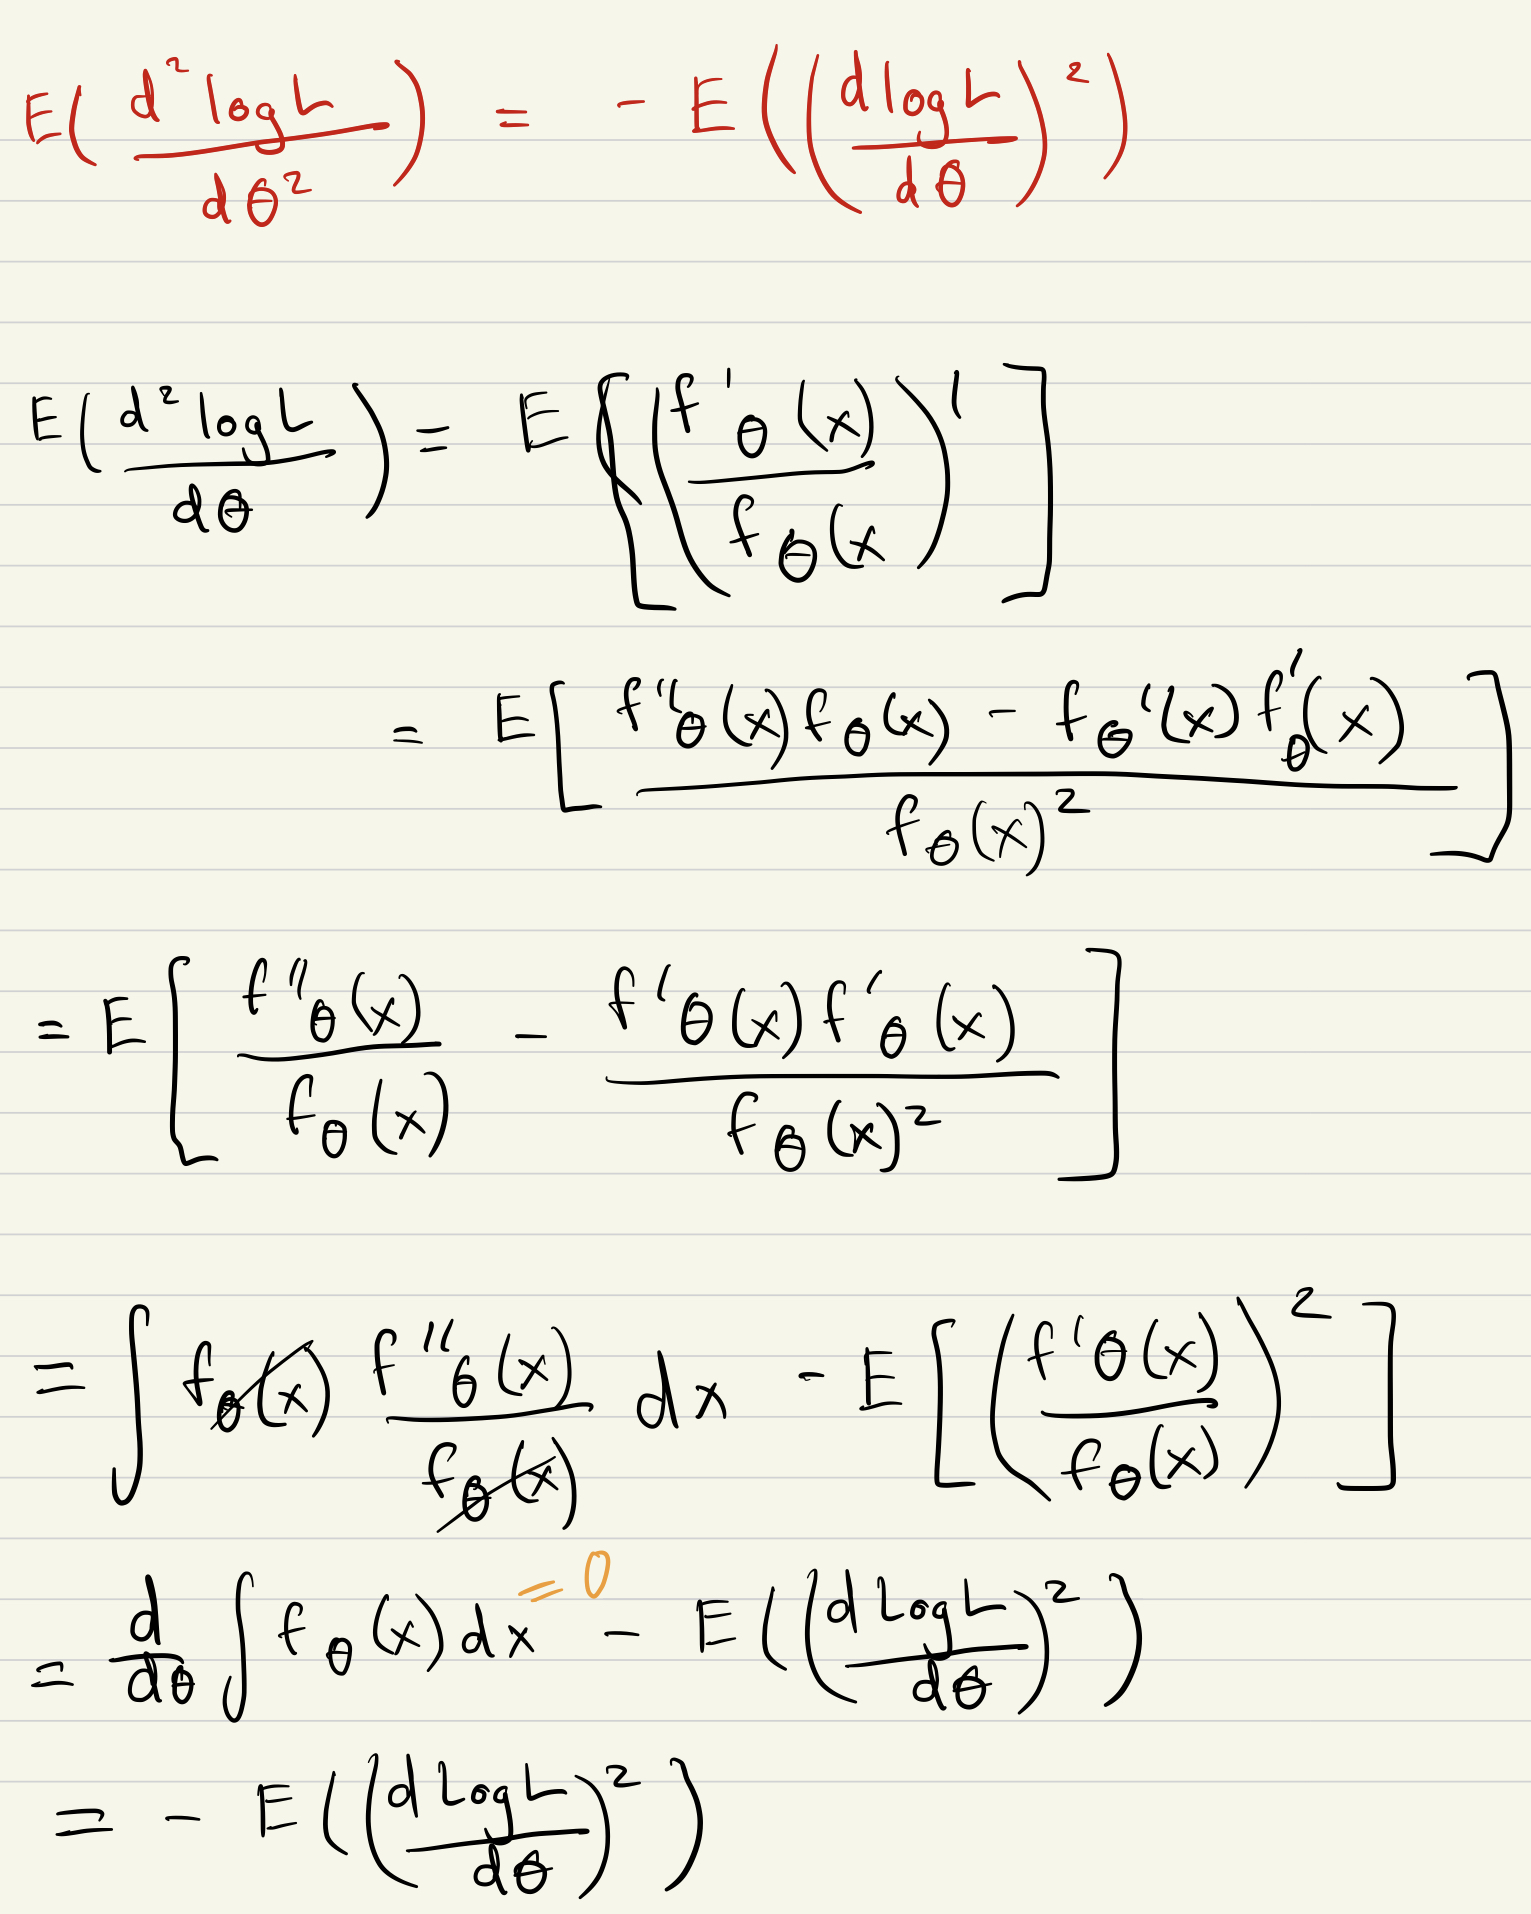 E( d² log L / dθ² ) = - E( ( d log L / dθ )² )
E( d² log L / dθ ) = E[ ( f'θ(x) / fθ(x )' ]
= E[ f''θ(x) fθ(x) - fθ'(x) f'θ(x) / fθ(x)² ]
= E[ f''θ(x) / fθ(x) - f'θ(x) f'θ(x) / fθ(x)² ]
= ∫ fθ(x) f''θ(x) / fθ(x) dx - E[ ( f'θ(x) / fθ(x) )² ]
= d/dθ ∫ fθ(x) dx = 0 - E( ( d Log L / dθ )² )
= - E( ( d Log L / dθ )² )